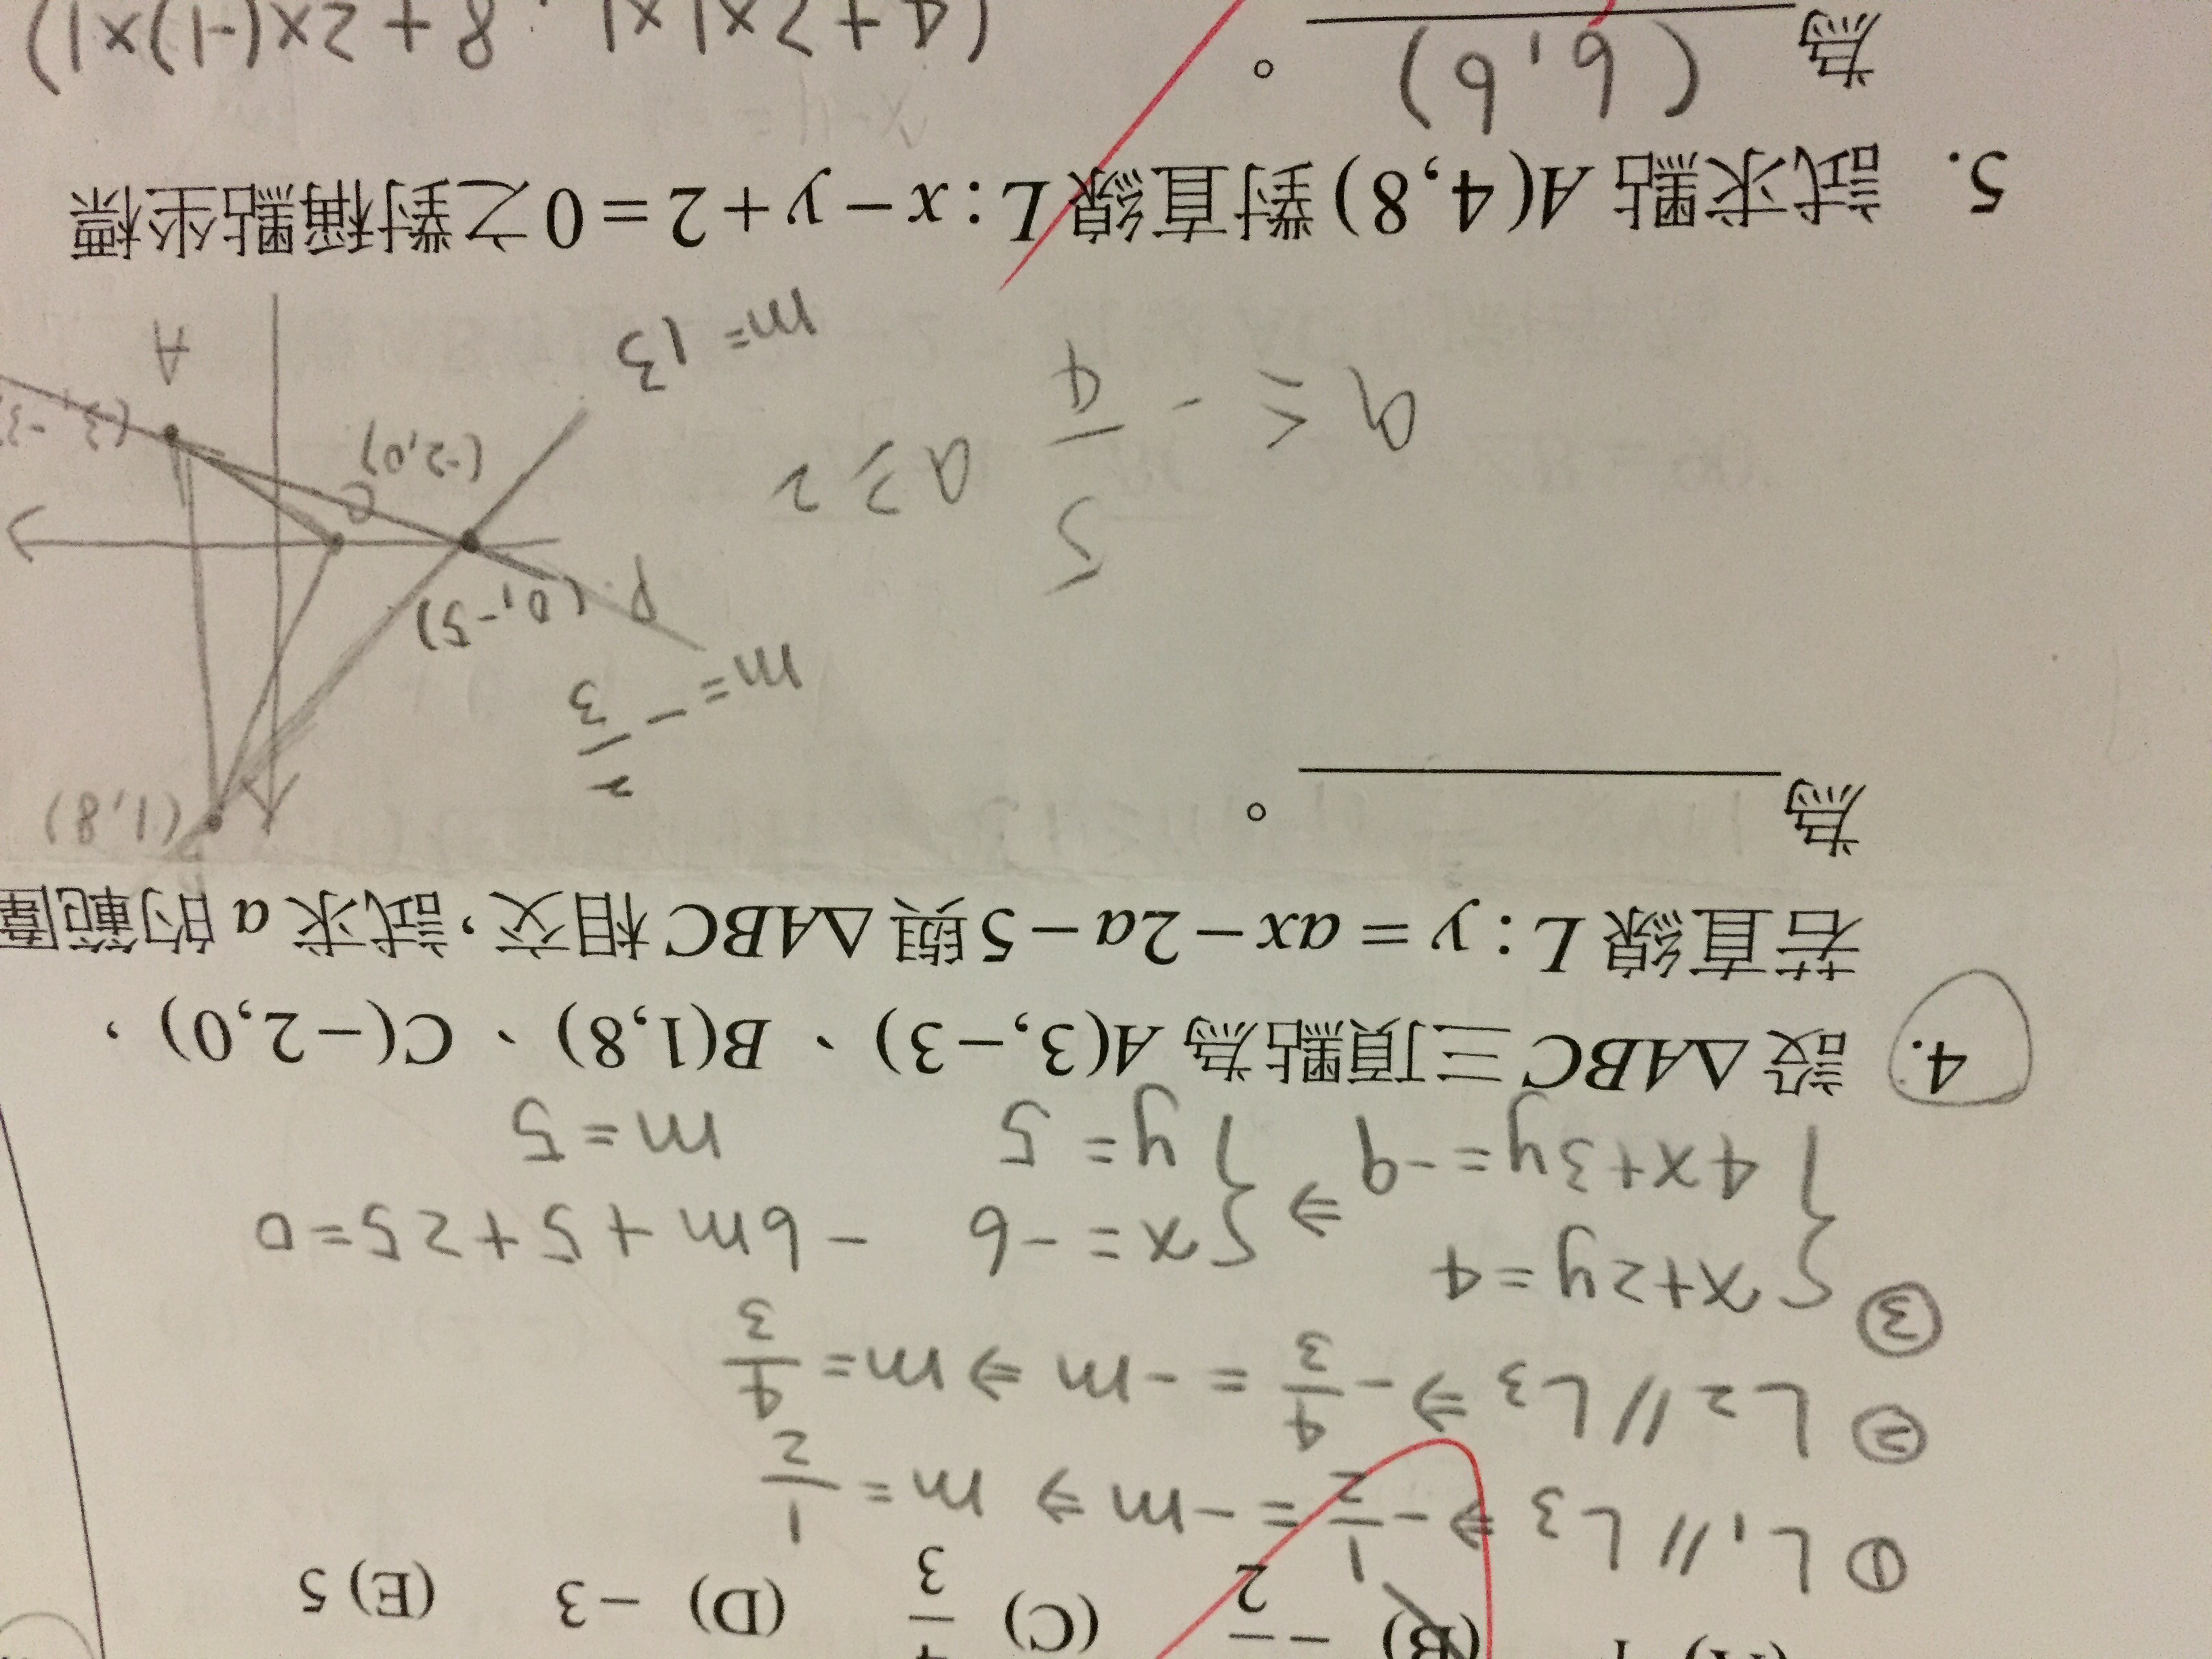 (B) − 2 (C) 3 (D) −3 (E) 5
① L₁ // L₃ ⇒ −1/2 = −m ⇒ m = 1/2
② L₂ // L₃ ⇒ −4/3 = −m ⇒ m = 4/3
③ { x+2y=4
4x+3y=−9 ⇒ { x = −6
y = 5
−6m+5+25=0
m=5
4. 設 △ABC 三頂點為 A(3,−3)、B(1,8)、C(−2,0),
若直線 L : y = ax − 2a − 5 與 △ABC 相交,試求 a 的範圍
為 。
(1,8)
m= −2/3
P. (0,−5)
(−2,0)
C
(3,−3)
A
m= 13
a ≤ −5/4
a ≥ 2
5. 試求點 A(4,8) 對直線 L : x − y + 2 = 0 之對稱點坐標
為 (6,6) 。
(4+2×1×1 , 8+2×(−1)×1)